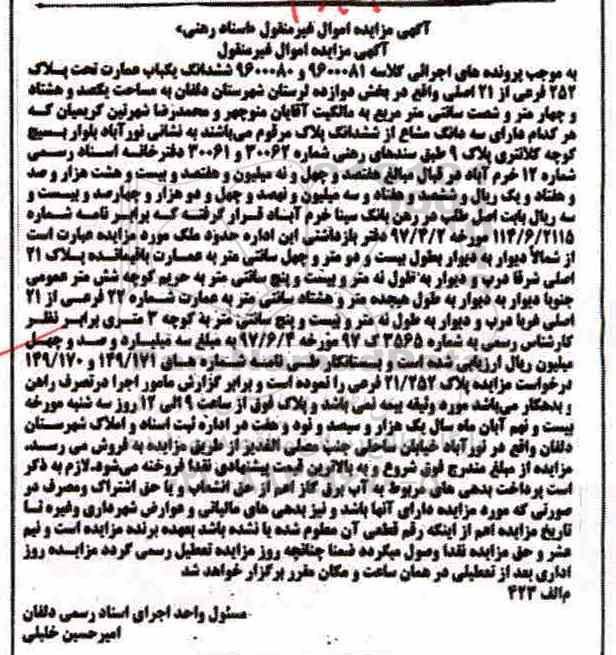 آگهی مزایده اموال غیرمنقول «اسناد رهنی»
آگهی مزایده اموال غیرمنقول
به موجب پرونده های اجرائی کلاسه ۹۶۰۰۰۸۱ و ۹۶۰۰۰۸۰ ششدانگ یکباب عمارت تحت پلاک
۲۵۲ فرعی از ۲۱ اصلی واقع در بخش دوازده لرستان شهرستان دلفان به مساحت یکصد و هشتاد
و چهار متر و شصت سانتی متر مربع به مالکیت آقایان منوچهر و محمدرضا شهرتین کریمیان که
هر کدام دارای سه دانگ مشاع از ششدانگ پلاک مرقوم می‌باشند به نشانی نورآباد بلوار بسیج
کوچه کلانتری پلاک ۹ طبق سندهای رهنی شماره ۳۰۰۶۲ و ۳۰۰۶۱ دفترخانه اسناد رسمی
شماره ۱۲ خرم آباد در قبال مبالغ هفتصد و چهل و نه میلیون و هفتصد و بیست و هشت هزار و صد
و هفتاد و یک ریال و ششصد و هفتاد و سه میلیون و نهصد و چهل و دو هزار و چهارصد و بیست و
سه ریال بابت اصل طلب در رهن بانک سینا خرم آباد قرار گرفته که برابر نامه شماره
۱۱۴/۶/۲۱۱۵ مورخه ۹۷/۴/۲ دفتر بازداشتی این اداره حدود ملک مورد مزایده عبارت است
از شمالاً دیوار به دیوار بطول بیست و دو متر و چهل سانتی متر به عمارت باقیمانده پلاک ۲۱
اصلی شرقا درب و دیوار به طول نه متر و بیست و پنج سانتی متر به حریم کوچه شش متر عمومی
جنوبا دیوار به دیوار به طول هیجده متر و هشتاد سانتی متر به عمارت شماره ۲۲ فرعی از ۲۱
اصلی غربا درب و دیوار به طول نه متر و بیست و پنج سانتی متر به کوچه ۳ متری برابر نظر
کارشناس رسمی به شماره ۳۵۶۵ ک ۹۷ مورخه ۹۷/۶/۴ به مبلغ سه میلیارد و صد و چهل
میلیون ریال ارزیابی شده است و بستانکار طی نامه شماره های ۱۴۹/۱۷۱ و ۱۴۹/۱۷۰
درخواست مزایده پلاک ۲۱/۲۵۲ فرعی را نموده است و برابر گزارش مامور اجرا درتصرف راهن
و بدهکار می‌باشد مورد وثیقه بیمه نمی باشد و پلاک فوق از ساعت ۹ الی ۱۲ روز سه شنبه مورخه
بیست و نهم آبان ماه سال یک هزار و سیصد و نود و هفت در اداره ثبت اسناد و املاک شهرستان
دلفان واقع در نورآباد خیابان ساحلی جنب مصلی الغدیر از طریق مزایده به فروش می رسد.
مزایده از مبلغ مندرج فوق شروع و به بالاترین قیمت پیشنهادی نقدا فروخته می‌شود.لازم به ذکر
است پرداخت بدهی های مربوط به آب برق گاز اعم از حق انشعاب و یا حق اشتراک ومصرف در
صورتی که مورد مزایده دارای آنها باشد و نیز بدهی های مالیاتی و عوارض شهرداری وغیره تا
تاریخ مزایده اعم از اینکه رقم قطعی آن معلوم شده یا نشده باشد بعهده برنده مزایده است و نیم
عشر و حق مزایده نقدا وصول میگردد ضمنا چنانچه روز مزایده تعطیل رسمی گردد مزایده روز
اداری بعد از تعطیلی در همان ساعت و مکان مقرر برگزار خواهد شد
م‌الف ۴۲۳
مسئول واحد اجرای اسناد رسمی دلفان
امیرحسین خلیلی